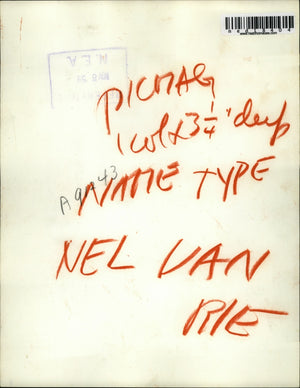 N E A
PICMAG
1 col x 3 1/4" deep
A 9443
NAME TYPE
NEL VAN
RIE